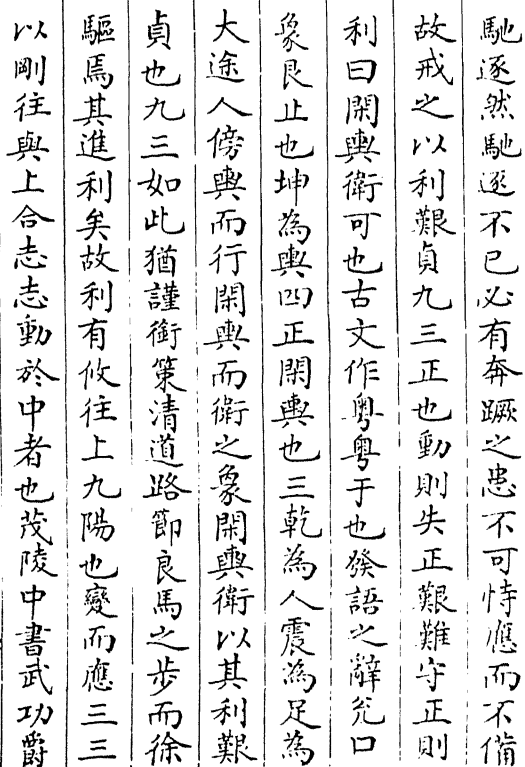 馳逐然馳逐不已必有奔蹶之患不可恃應而不備
故戒之以利艱貞九三正也動則失正艱難守正則
利曰閑輿衛可也古文作粤粤于也發語之辭兊口
象艮止也坤為輿四正閑輿也三乾為人震為足為
大途人傍輿而行閑輿而衛之象閑輿衛以其利艱
貞也九三如此猶謹銜策清道路節良馬之步而徐
驅焉其進利矣故利有攸往上九陽也變而應三三
以剛往與上合志志動於中者也茂陵中書武功爵